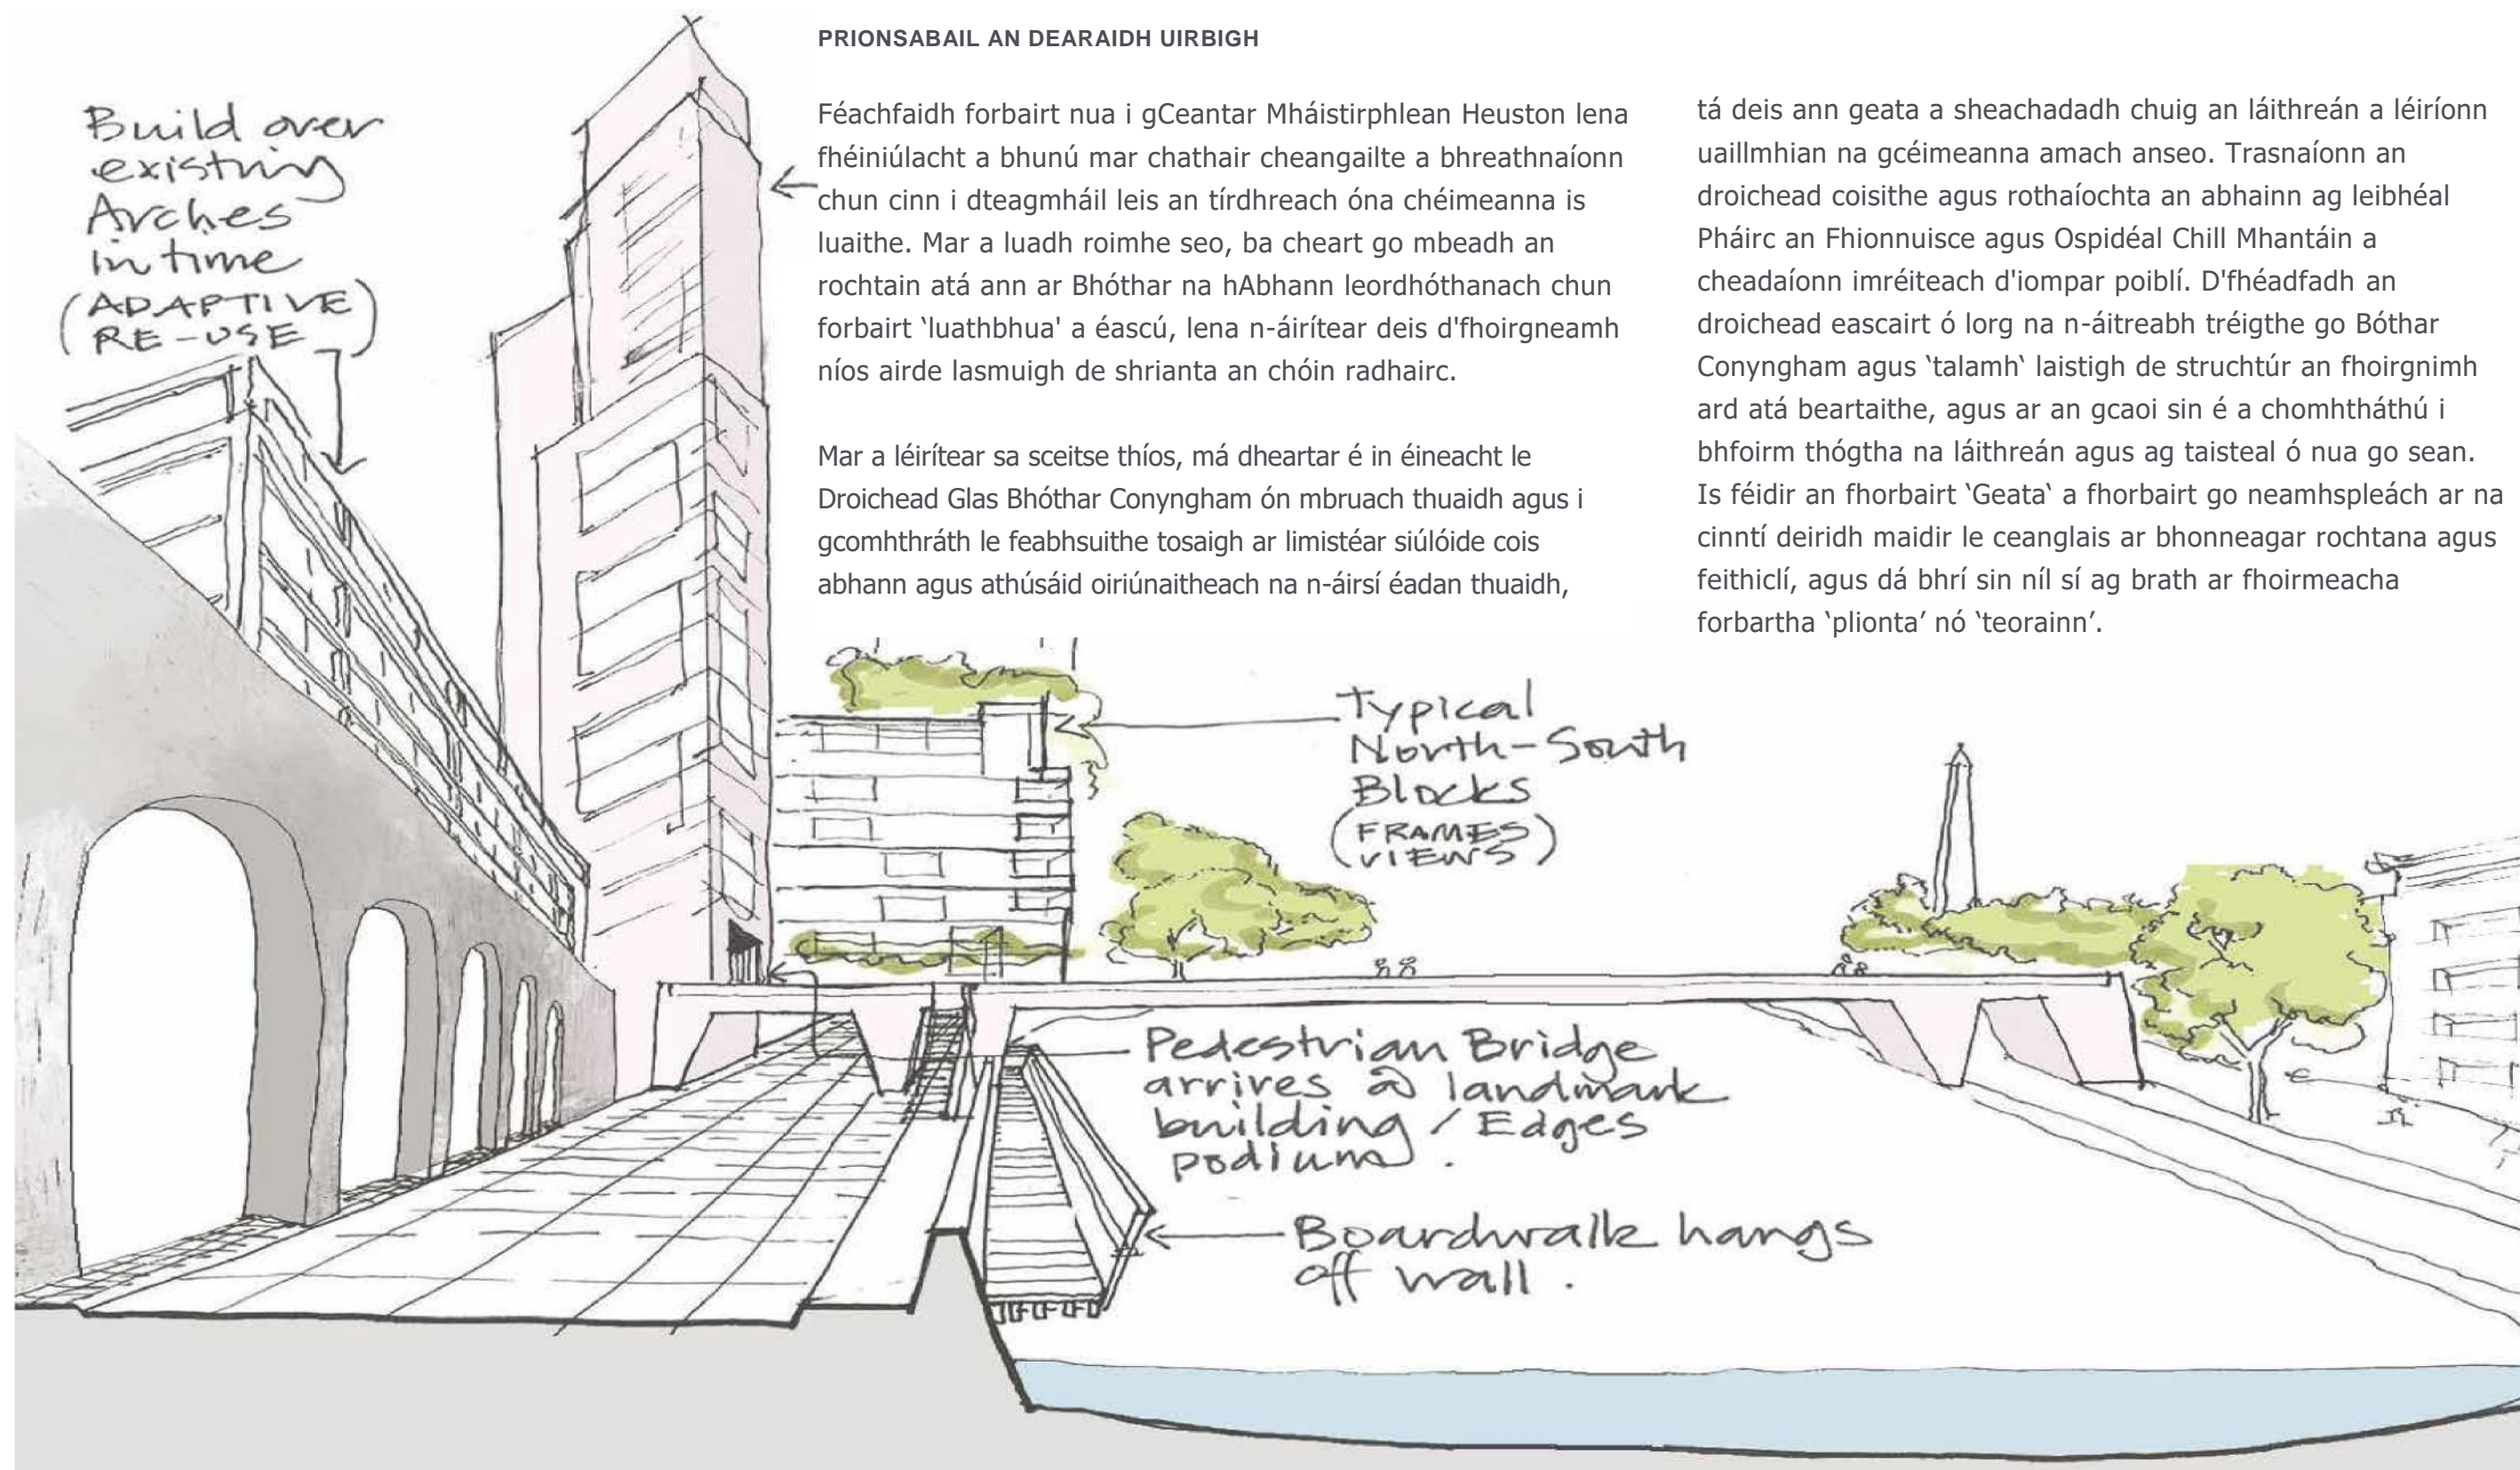 PRIONSABAIL AN DEARAIDH UIRBIGH
Féachfaidh forbairt nua i gCeantar Mháistirphlean Heuston lena
fhéiniúlacht a bhunú mar chathair cheangailte a bhreathnaíonn
chun cinn i dteagmháil leis an tírdhreach óna chéimeanna is
luaithe. Mar a luadh roimhe seo, ba cheart go mbeadh an
rochtain atá ann ar Bhóthar na hAbhann leordhóthanach chun
forbairt ‘luathbhua' a éascú, lena n-áirítear deis d'fhoirgneamh
níos airde lasmuigh de shrianta an chóin radhairc.
Mar a léirítear sa sceitse thíos, má dheartar é in éineacht le
Droichead Glas Bhóthar Conyngham ón mbruach thuaidh agus i
gcomhthráth le feabhsuithe tosaigh ar limistéar siúlóide cois
abhann agus athúsáid oiriúnaitheach na n-áirsí éadan thuaidh,
tá deis ann geata a sheachadadh chuig an láithreán a léiríonn
uaillmhian na gcéimeanna amach anseo. Trasnaíonn an
droichead coisithe agus rothaíochta an abhainn ag leibhéal
Pháirc an Fhionnuisce agus Ospidéal Chill Mhantáin a
cheadaíonn imréiteach d'iompar poiblí. D'fhéadfadh an
droichead eascairt ó lorg na n-áitreabh tréigthe go Bóthar
Conyngham agus ‘talamh‘ laistigh de struchtúr an fhoirgnimh
ard atá beartaithe, agus ar an gcaoi sin é a chomhtháthú i
bhfoirm thógtha na láithreán agus ag taisteal ó nua go sean.
Is féidir an fhorbairt ‘Geata‘ a fhorbairt go neamhspleách ar na
cinntí deiridh maidir le ceanglais ar bhonneagar rochtana agus
feithiclí, agus dá bhrí sin níl sí ag brath ar fhoirmeacha
forbartha ‘plionta’ nó ‘teorainn’.
Build over
existing
Arches
in time
(ADAPTIVE
RE-USE)
Typical
North-South
Blocks
(FRAMES
VIEWS)
Pedestrian Bridge
arrives @ landmark
building / Edges
podium.
Boardwalk hangs
off wall.